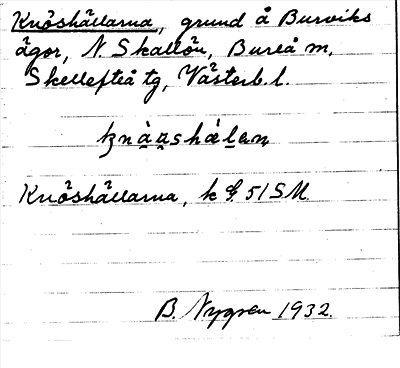 Knöshällarna, grund å Burviks
ägor, N. Skallön, Bureå m,
Skellefteå tg, Västerb. l.
Knöshällarna, k 51 S.M.
B. Nygren 1932.